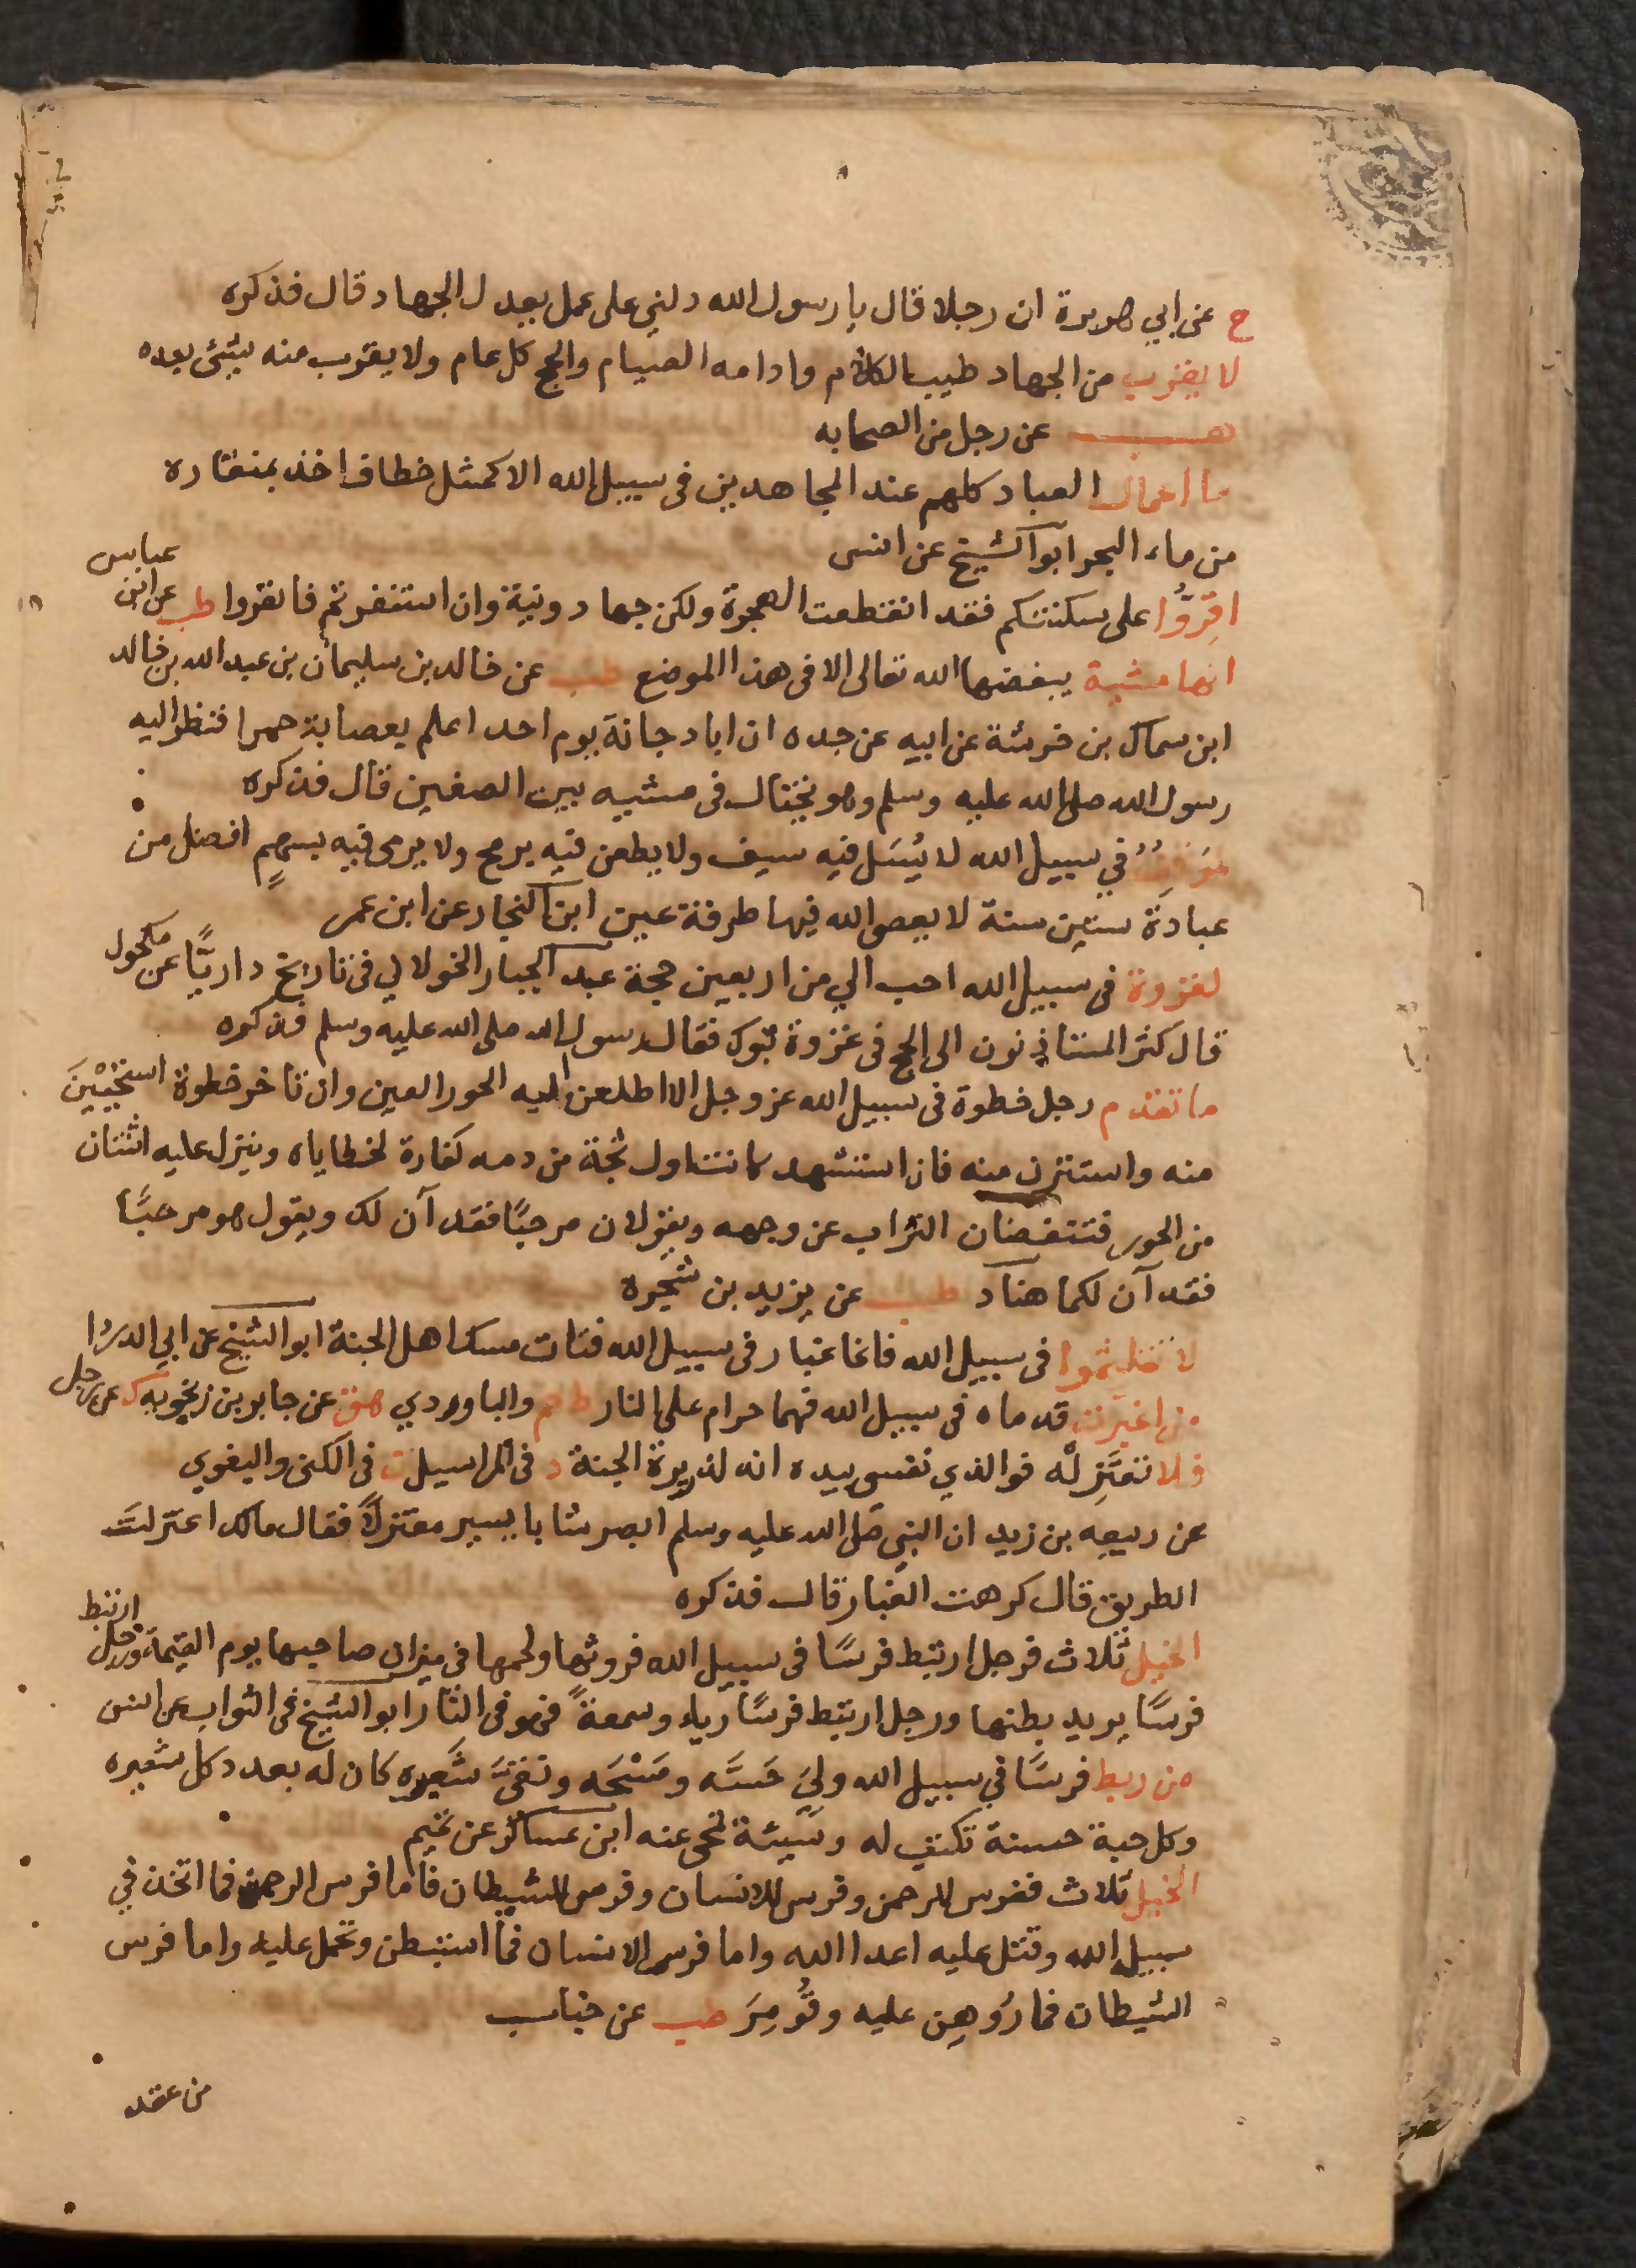 خ عن ابي هريرة ان رجلا قال يا رسول الله دلني على عمل يعدل الجهاد قال فذكره
لا يقرب من الجهاد طيب الكلام وادامه الصيام والحج كل عام ولا يقرب منه شئ بعده
هب عن رجل من الصحابه
ما اعمال العباد كلهم عند المجاهدين فى سبيل الله الا كمثل خطاف اخذ بمنقاره
من ماء البحر ابو الشيخ عن انس
اقِرُّوا على سكنتكم فقد انقطعت الهجرة ولكن جهاد ونية وان استنفرتم فانفروا طب عن ابن عباس
انها مشية يبغضها الله تعالى الا فى هذا الموضع طب عن خالد بن سليمان بن عبد الله بن خالد
ابن سماك بن خرشة عن ابيه عن جده ان ابا دجانة يوم احد اعلم بعصابة حمرا فنظر اليه
رسول الله صلى الله عليه وسلم وهو يختال فى مشيه بين الصفين قال فذكره
موقف في سبيل الله لا يُسَل فيه سيف ولا يطعن فيه برمح ولا يرمى فيه بسهمٍ افضل من
عبادة ستين سنة لا يعصى الله فيها طرفة عين ابن النجار عن ابن عمر
لغزوة فى سبيل الله احب الي من اربعين حجة عبد الجبار الخولاني فى تاريخ داريَّا عن مكحول
قال كثر المستاذنون الى الحج فى غزوة تبوك فقال رسول الله صلى الله عليه وسلم فذكره
ما تقدم رجل خطوة فى سبيل الله عز وجل الا اطلعن اليه الحور العين وان تاخر خطوة استحيَيْنَ
منه واستترن منه فان استشهد كانت اول ثجة من دمه كفارة لخطاياه وينزل عليه اثنتان
من الحور فتنفضان التراب عن وجهه ويقولان مرحبًا فقد آن لك ويقول هو مرحبًا
فقد آن لكما هناد طب عن يزيد بن شجرة
لا تلثموا فى سبيل الله فانما غبار فى سبيل الله فتات مسك اهل الجنة ابو الشيخ عن ابي الدردا
من اغبرت قدماه فى سبيل الله فهما حرام على النار ط حم والباوردي هق عن جابر بن زنجويه كر عن رجل
فلا تعتَزِلْه فوالذي نفسى بيده انه لذريرة الجنة د فى المراسيل ن فى الكنى والبغوي
عن ربيعه بن زيد ان النبي صلى الله عليه وسلم ابصر شابا يسير معتزلاً فقال مالك اعتزلت
الطريق قال كرهت الغبار قال فذكره
الخيل ثلاث فرجل ارتبط فرسًا فى سبيل الله فروثها ولحمها فى ميزان صاحبها يوم القيمة ورجل ارتبط
فرسًا يريد بطنها ورجل ارتبط فرسًا رياء وسمعةً فهو فى النار ابو الشيخ فى الثواب عن انس
من ربط فرسًا في سبيل الله وليَ حَسَّه ومَسْحَه ونقىَّ شَعيره كان له بعدد كل شعيره
وكل حبة حسنة تكتب له وسيئة تمحى عنه ابن عساكر عن تميم
الخيل ثلاث ففرس للرحمن وفرس للانسان وفرس للشيطان فاما فرس الرحمن فما اتخذ في
سبيل الله وقتل عليه اعدا الله واما فرس الانسان فما استبطن وتحمل عليه واما فرس
الشيطان فما رُوهِن عليه وقُومِرَ طب عن خباب
من عقد